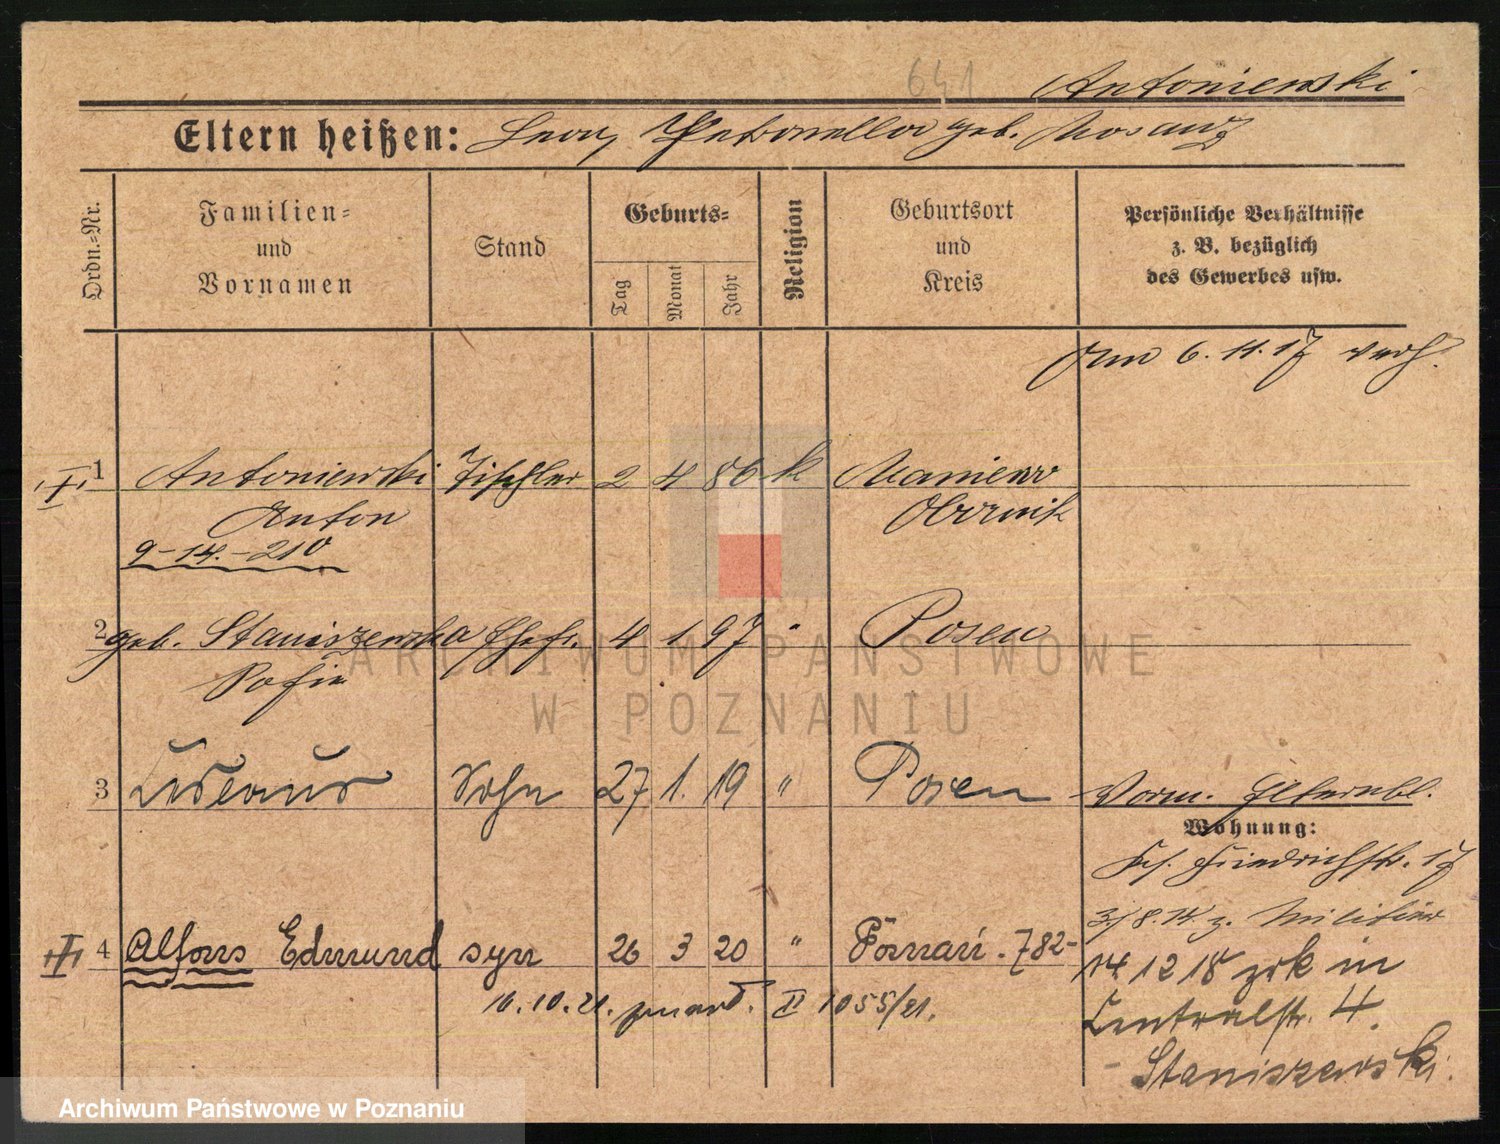 641 Antoniewski
Eltern heißen: Leon, Petronella geb. Mosarz
Ordn.=Nr.
Familien=
und
Vornamen
Stand
Geburts=
Tag
Monat
Jahr
Religion
Geburtsort
und
Kreis
Persönliche Verhältnisse
z. B. bezüglich
des Gewerbes usw.
Am 6.11.17 verh.
1 Antoniewski Tischler 2 4 86 k Maniewo
Anton Obornik
9-14.-210
2 geb. Staniszewska Ehefr. 4 1 97 " Posen
Sofie
3 Sohn 27 1. 19 " Posen
Vorm. Elternbl.
Wohnung:
Ks. Friedrichstr. 17
3/8.14 z. Militär
4 Alfons Edmund syn 26 3 20 " Poznań. 782-
14 12 18 zrk in
16.10.21. zmarł. II 1055/21.
Centralstr. 4.
- Staniszewski.
ARCHIWUM PAŃSTWOWE
W POZNANIU
Archiwum Państwowe w Poznaniu